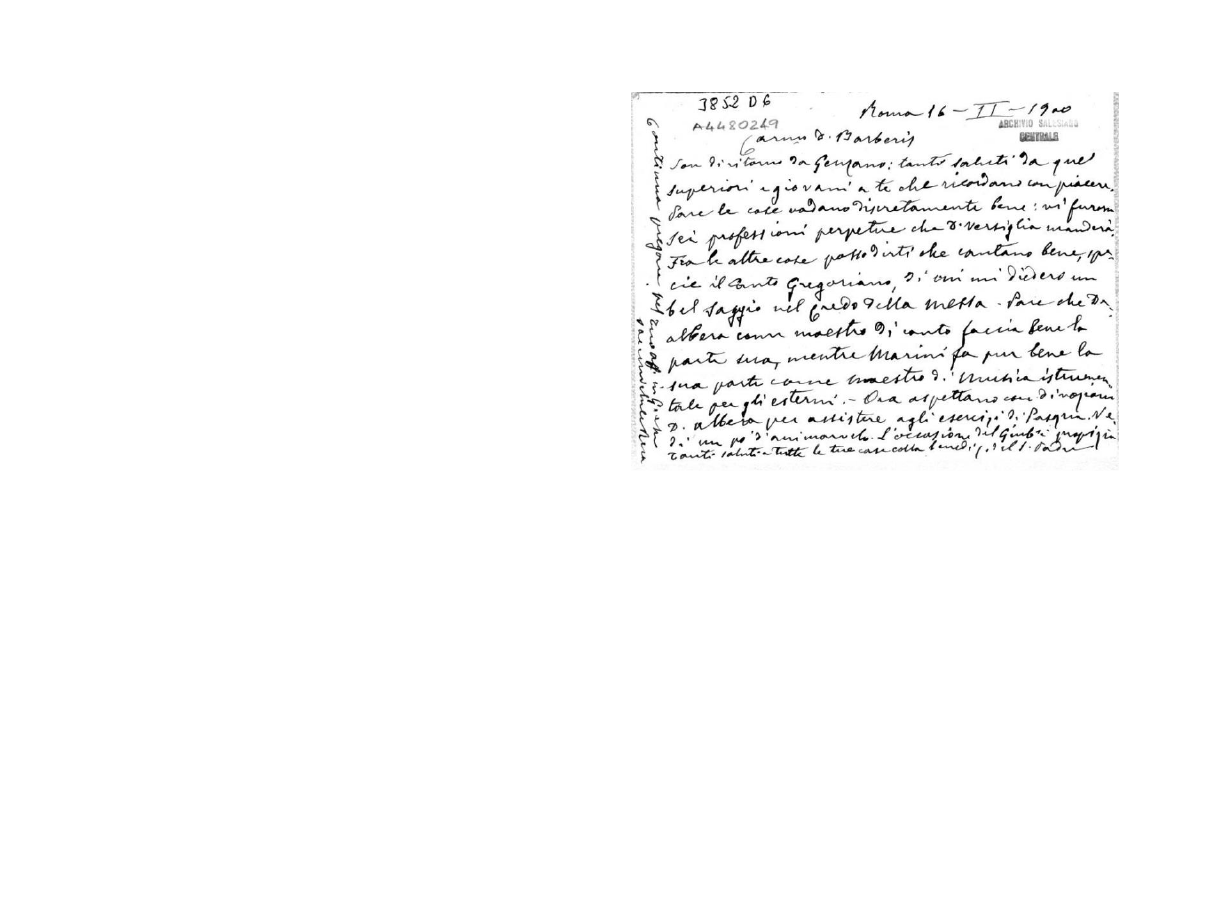 3852 D6
A4480249
Roma 16 - II - 1900
ARCHIVIO SALESIANO
CENTRALE
Carmo D. Barberis
Son di ritorno da Genzano: tanti saluti da quei
superiori e giovani a te che ricordano con piacere.
Pare le cose vadano discretamente bene: vi furono
sei professioni perpetue che D. Versiglia manderà.
Fra le altre cose posso dirti che cantano bene, spe-
cie il Canto Gregoriano, di cui mi diedero un
bel saggio nel Credo della Messa. Pare che Da-
albera come maestro di canto faccia bene la
parte sua, mentre Marini fa pur bene la
sua parte come maestro di Musica istrumen
tale per gli esterni. - Ora aspettano con
D. Albera per assistere agli esercizi di Pasqua. Ve-
di un po' d'animarvelo. L'occasione del Giubi propizia
Tanti saluti a tutte le tue case colla bened. del S. Padre
Continua pregare pel tuo aff. in G.